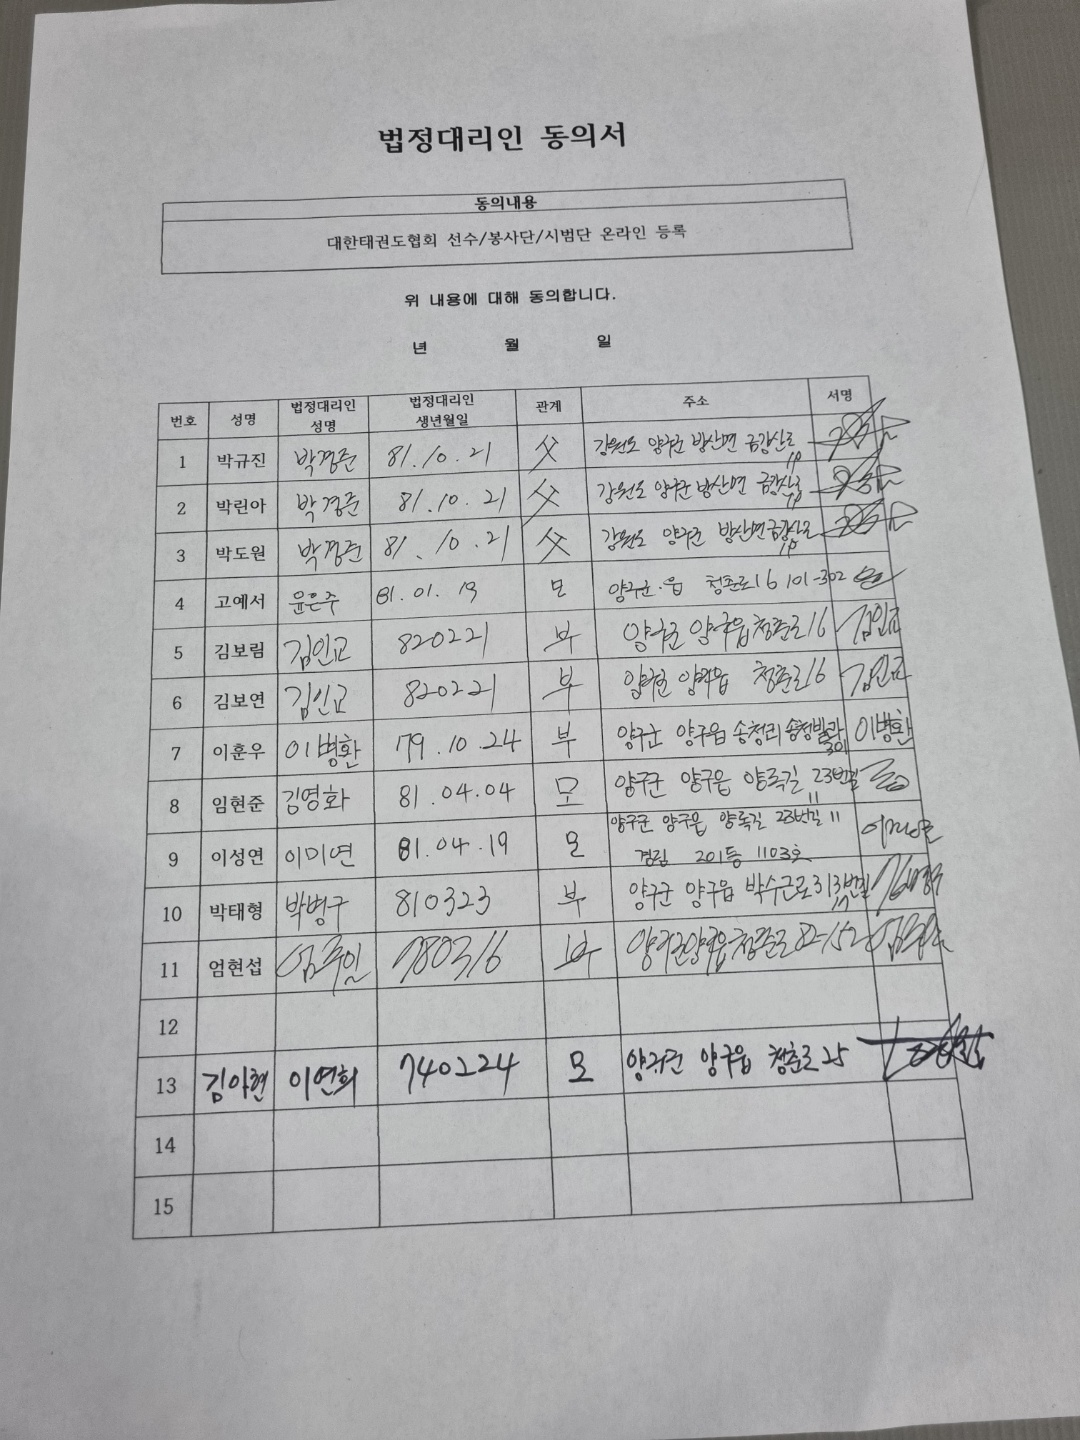 법정대리인 동의서
동의내용
대한태권도협회 선수/봉사단/시범단 온라인 등록
위 내용에 대해 동의합니다.
년 월 일
번호 성명 법정대리인 성명 법정대리인 생년월일 관계 주소 서명
1 박규진 박경준 81.10.21 父 강원도 양구군 방산면 금강산로
2 박린아 박경준 81.10.21 父 강원도 양구군 방산면 금강산로
3 박도원 박경준 81.10.21 父 강원도 양구군 방산면 금강산로
4 고예서 윤은주 81.01.13 모 양구군.읍 청춘로16 101-302
5 김보림 김인교 820221 부 양구군 양구읍 청춘로16 김인교
6 김보연 김인교 820221 부 양구군 양구읍 청춘로16 김인교
7 이훈우 이병환 79.10.24 부 양구군 양구읍 송청리 송청빌라 301 이병환
8 임현준 김영화 81.04.04 모 양구군 양구읍 양록길 23번길 11
9 이성연 이미연 81.04.19 모 양구군 양구읍 양록길 23번길 11
201동 1103호
10 박태형 박병구 810323 부 양구군 양구읍 박수근로313번길
11 엄현섭 엄주일 780316 부 양구군 양구읍 청춘로 82-152
12
13 김아현 이연희 740224 모 양구군 양구읍 청춘로 25
14
15